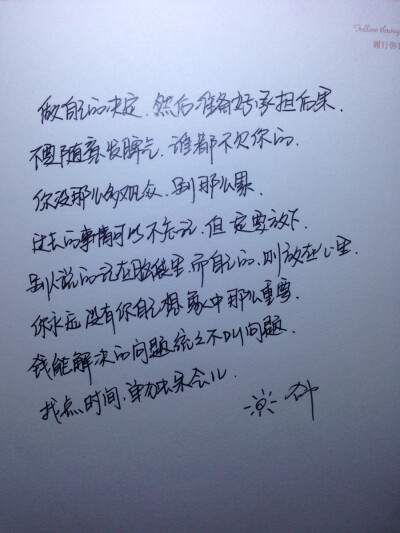 Follow throug
履行你
做自己的决定，然后准备好承担后果。
不要随意发脾气，谁都不欠你的。
你没那么多观众，别那么累。
过去的事情可以不忘记，但一定要放下。
别人说的记在脑袋里，而自己的，则放在心里。
你永远没有你自己想象中那么重要。
钱能解决的问题统统不叫问题。
找点时间，单独呆会儿。